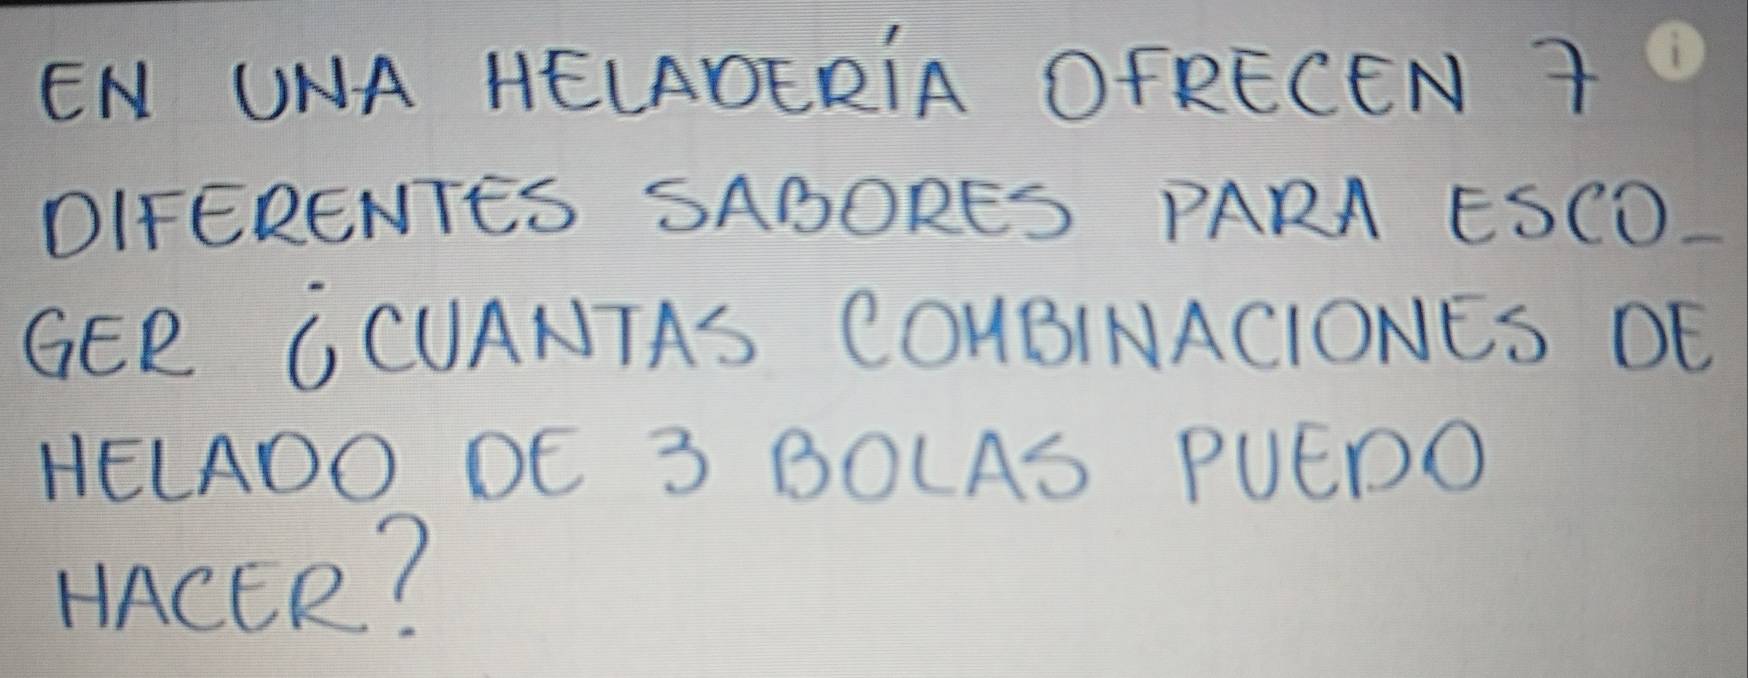 EN UNA HELADERÍA OFRECEN 7
DIFERENTES SABORES PARA ESCO-
GER ¿CUANTAS COMBINACIONES DE
HELADO DE 3 BOLAS PUEDO
HACER?